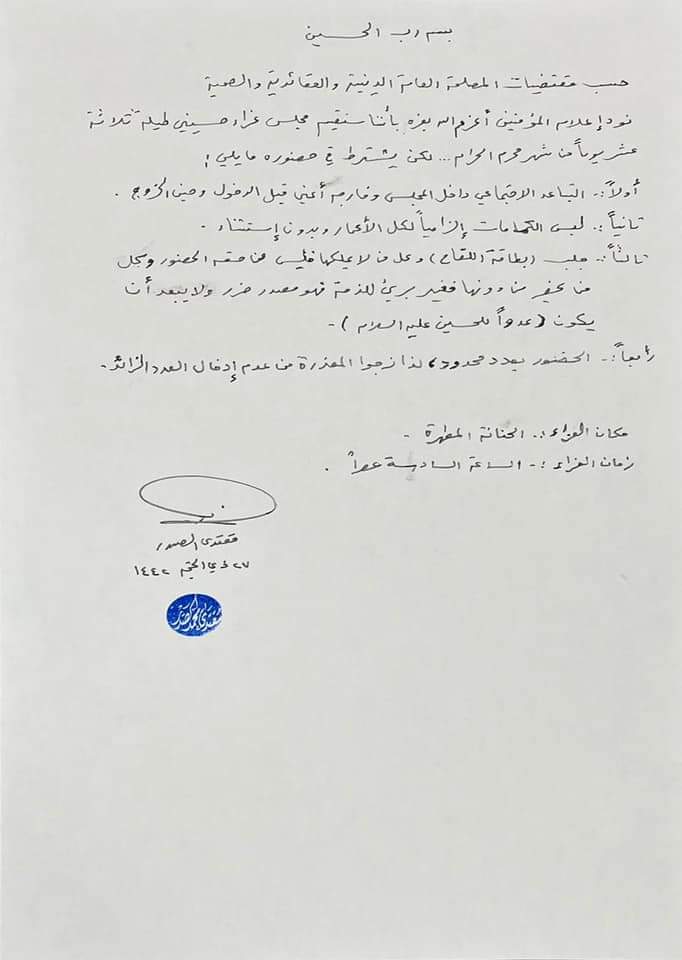 بسم رب الحسين
حسب مقتضيات المصلحة العامة الدينية والعقائدية والصحية
نود إعلام المؤمنين أعزهم الله بعزه بأننا سنقيم مجلس عزاء حسيني لميلة ثلاثة
عشر يوماً من شهر محرم الحرام... لكن يشترط في حضوره ما يلي:
أولاً:- التباعد الاجتماعي داخل المجلس وخارجه أعني قبل الدخول وحين الخروج.
ثانياً:- لبس الكمامات إلزامياً لكل الأعمار وبدون إستثناء -
ثالثاً:- جلب (بطاقة اللقاح) وعلى من لا يملكها فليس من حقه الحضور وكل
من يحضر من دونها فغير بريئ للذمة فهو مصدر ضرر ولا يبعد أن
يكون (عدواً للحسين عليه السلام) -
رابعاً:- الحضور بعدد محدود، لذا نرجوا المعذرة من عدم إدخال العدد الزائد -
مكان العزاء:- الحنانة المطهرة -
زمان العزاء:- الساعة السادسة عصراً.
مقتدى الصدر
٢٧ ذي الحجة ١٤٤٢